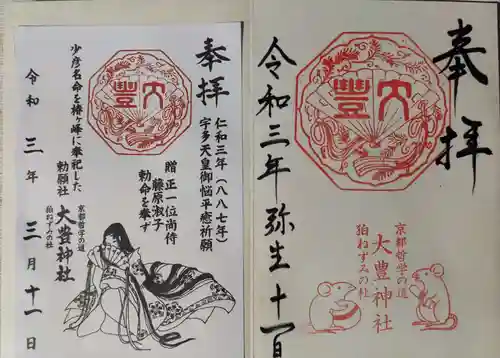 奉拝
仁和三年(八八七年)
宇多天皇御悩平癒祈願
贈 正一位尚侍
藤原淑子
勅命を奉ず
大豊
少彦名命を椿ヶ峰に奉祀した
勅願社
京都哲学の道
大豊神社
狛ねずみの社
令和三年三月十一日
奉拝
大豊
京都哲学の道
大豊神社
狛ねずみの社
令和三年弥生十一日